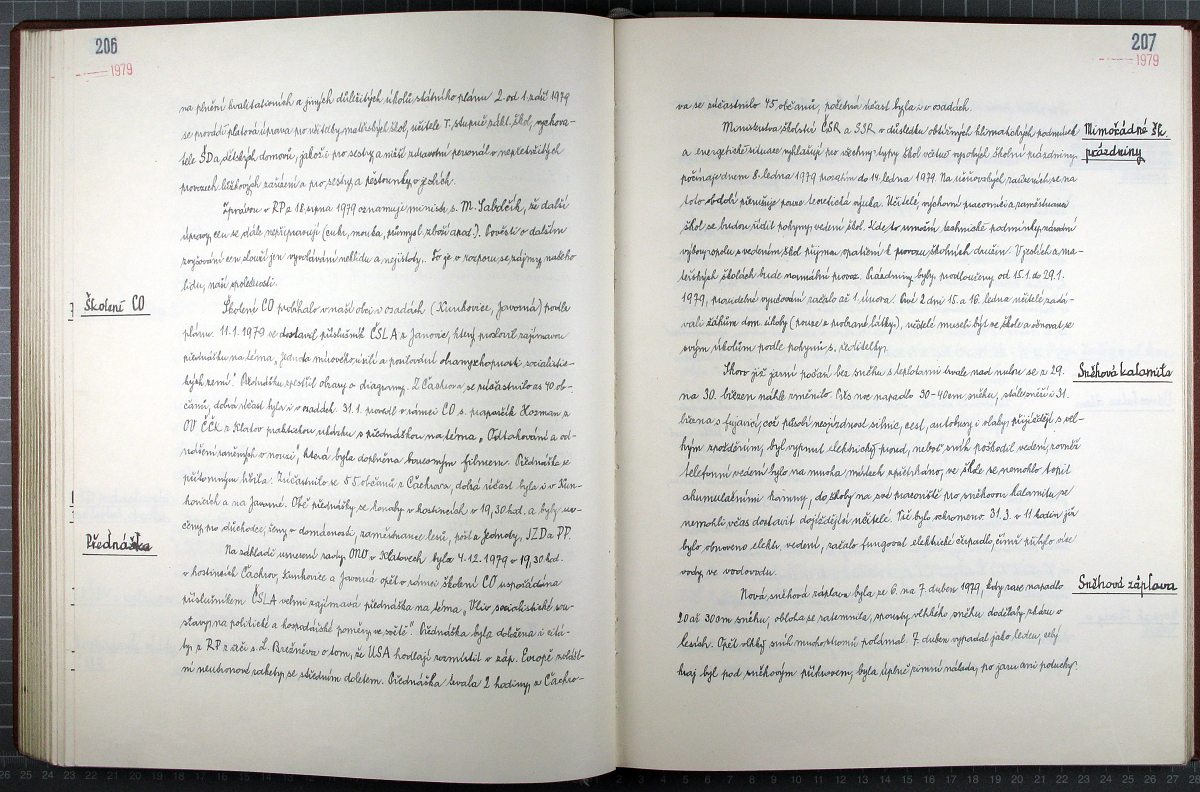 206
1979
na plnění kvalitativních a jiných důležitých úkolů státního plánu 2. od 1. září 1979
se provádí platová úprava pro učitelky mateřských škol, učitele I. stupně zákl. škol, vychova-
tele ŠD a dětských domovů, jakož i pro sestry a nižší zdravotní personál v nepřetržitých
provozech lůžkových zařízení a pro sestry a pěstounky v jeslích.
Zprávou v RP z 18. srpna 1979 oznamuje ministr s. M. Sabolčík, že další
úpravy cen se dále nepřipravují (cukr, mouka, průmysl. zboží apod.). Pověsti o dalším
zvyšování cen slouží jen vyvolávání neklidu a nejistoty. To je v rozporu se zájmy našeho
lidu, naší společnosti.
Školení CO
Školení CO probíhalo v naší obci i v osadách (Kunkovice, Javorná) podle
plánu. 11.1. 1979 se dostavil příslušník ČSLA z Janovic, který proslovil zajímavou
přednášku na téma „Jednota mírového úsilí a posilování obranyschopnosti socialistic-
kých zemí." Přednášku zpestřil obrazy a diagramy. Z Čachrova se zúčastnilo as 40 ob-
čanů, dobrá účast byla i v osadách. 31.1. provedl v rámci CO s. praporčík Hozman z
OV ČČK z Klatov praktickou ukázku s přednáškou na téma „Odtahování a od-
nášení raněných v nouzi", která byla doplněna barevným filmem. Přednáška se
přítomným líbila. Zúčastnilo se 55 občanů z Čachrova, dobrá účast byla i v Kun-
kovicích a na Javorné. Obě přednášky se konaly v hostincích v 19,30 hod. a byly ur-
čeny pro důchodce, ženy v domácnosti, zaměstnance lesů, pošt a Jednoty, JZD a PP.
Přednáška
Na základě usnesení rady ONV v Klatovech byla 4.12. 1979 v 19,30 hod.
v hostincích Čachrov, Kunkovice a Javorná opět v rámci školení CO uspořádána
příslušníkem ČSLA velmi zajímavá přednáška na téma „Vliv socialistické sou-
stavy na politické a hospodářské poměry ve světě". Přednáška byla doložena i citá-
ty z RP z řeči s. L. Brežněva o tom, že USA hodlají rozmístit v záp. Evropě zvlášt-
ní neutronové rakety se středním doletem. Přednáška trvala 2 hodiny, z Čachro-
207
1979
va se zúčastnilo 45 občanů, početná účast byla i v osadách.
Mimořádné šk.
prázdniny
Ministerstva školství ČSR a SSR v důsledku obtížných klimatických podmínek
a energetické situace vyhlašují pro všechny typy škol včetně vysokých školní prázdniny,
počínaje dnem 8. ledna 1979 prozatím do 14. ledna 1979. Na učňovských zařízeních se na
toto období přerušuje pouze teoretická výuka. Učitelé, výchovní pracovníci a zaměstnanci
škol se budou řídit pokyny vedení škol. Kde to umožní technické podmínky, národní
výbory spolu s vedením škol přijmou opatření k provozu školních družin. V jeslích a ma-
teřských školách bude normální provoz. Prázdniny byly prodlouženy od 15.1. do 29.1.
1979, pravidelné vyučování začalo až 1. února. Prvé 2 dni 15. a 16. ledna učitelé zadá-
vali žákům dom. úkoly (pouze z probrané látky), učitelé museli být ve škole a věnovat se
svým úkolům podle pokynů s. ředitelky.
Sněhová kalamita
Skoro již jarní počasí bez sněhu s teplotami trvale nad nulou se z 29.
na 30. březen náhle změnilo. Přes noc napadlo 30-40 cm sněhu, stále sněží i 31.
března s fujavicí, což působí nesjízdnost silnic, cest, autobusy i vlaky přijíždějí s vel-
kým zpožděním, byl vypnut elektrický proud, neboť sníh poškodil vedení, rovněž
telefonní vedení bylo na mnoha místech zpřetrháno, ve škole se nemohlo topit
akumulačními kamny, do školy na své pracoviště pro sněhovou kalamitu se
nemohli včas dostavit dojíždějící učitelé. Vše bylo ochromeno. 31.3. v 11 hodin již
bylo obnoveno elektr. vedení, začalo fungovat elektrické čerpadlo, čímž přibylo více
vody ve vodovodu.
Sněhová záplava
Nová sněhová záplava byla ze 6. na 7. duben 1979, kdy zase napadlo
20 až 30 cm sněhu, obloha se zatemnila, spousty vlhkého sněhu dodělaly zkázu v
lesích. Opět vlhký sníh mnoho stromů polámal. 7. duben vypadal jako leden, celý
kraj byl pod sněhovým příkrovem, byla úplně zimní nálada, po jaru ani potuchy.